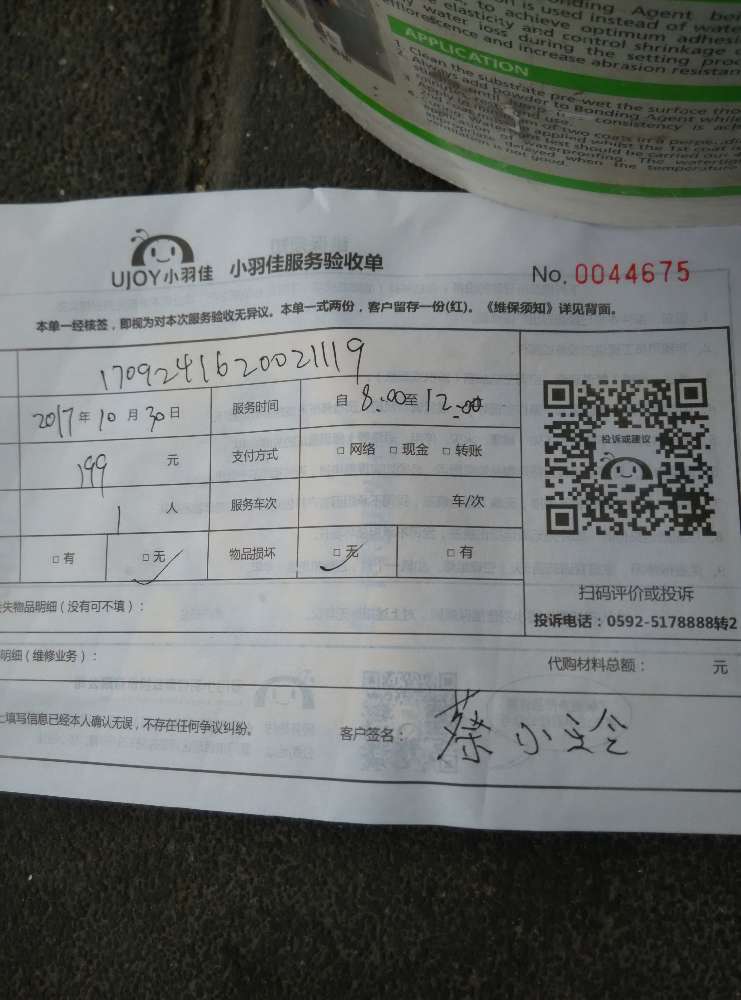 onding Agent bei
n is used instead of wate
e elasticity and control shrinkage
to achieve optimum adhesi
y water loss during the setting proc
efflorescence and increase abrasion resistan
APPLICATION
1. Clean the substrate pre-wet the surface tho
2. Always add powder to Bonding Agent while
consistency is ach
of two coats in a perpe
applied whilst the 1st coat
test should be carried out
waterproofing. The watertig
delayed when the temperature
is not good.
UJOY小羽佳 小羽佳服务验收单 No. 0044675
本单一经核签，即视为对本次服务验收无异议。本单一式两份，客户留存一份(红)。《维保须知》详见背面。
1709241620021119
2017年10月30日 服务时间 自 8:00至12:00
199 元 支付方式 □ 网络 □ 现金 □ 转账
1 人 服务车次 车/次
□ 有 □ 无 物品损坏 □ 无 □ 有
投诉或建议
扫码评价或投诉
投诉电话：0592-5178888转2
失物品明细（没有可不填）：
明细（维修业务）： 代购材料总额： 元
上填写信息已经本人确认无误，不存在任何争议纠纷。 客户签名：蔡小玲